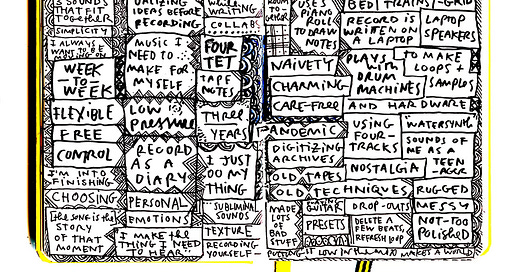 3 SOUNDS
THAT FIT
TOGETHER
SIMPLICITY
I ALWAYS
WANT TO BE
WEEK
TO
WEEK
FLEXIBLE
FREE
CONTROL
I'M INTO
FINISHING
CHOOSING
THE SONG IS THE
STORY
OF THAT
MOMENT
IDEAS BEFORE
RECORDING
MUSIC I
NEED TO
MAKE FOR
MYSELF
LOW
PRESSURE
RECORD
AS A
DIARY
PERSONAL
EMOTIONS
I MAKE THE
THING I NEED
TO HEAR
WHILE
WRITING
COLLABS
FOUR
TET
TAPE
NOTES
THREE
YEARS
I JUST
DO MY
THING
SUBLIMINAL
SOUNDS
TEXTURE
RECORDING
YOURSELF
ROOM
TO
USES
PIANO
ROLL
TO DRAW
NOTES
BED
TRAINS
GRID
RECORD IS
WRITTEN ON
A LAPTOP
LAPTOP
SPEAKERS
NAIVETY
CHARMING
CARE-FREE
PLAYS
WITH
DRUM
MACHINES
TO MAKE
LOOPS +
SAMPLES
AND HARDWARE
PANDEMIC
DIGITIZING
ARCHIVES
USING
FOUR-
TRACKS
WATERSYNC
SOUNDS OF
ME AS A
TEEN-
AGER
NOSTALGIA
OLD TAPES
OLD TECHNIQUES
RUGGED
MADE
LOTS
OF
BAD
STUFF
GUITAR
PRESETS
DROP-OUTS
DELETE A
FEW BEATS,
REFRESH LOOP
MESSY
NOT-TOO
POLISHED
PUTTING IT LOW IN THE MIX MAKES A WORLD